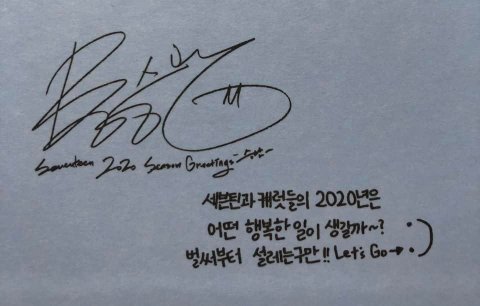 Seventeen 2020 Season Greetings -승관-
세븐틴과 캐럿들의 2020년은
어떤 행복한 일이 생길까~?
벌써부터 설레는구만!! Let's Go→ :)